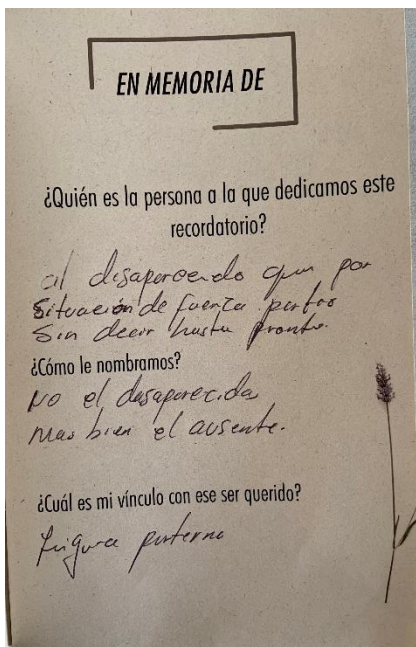 EN MEMORIA DE
¿Quién es la persona a la que dedicamos este
recordatorio?
al disaparcendo que por
situación de fuerza partio
Sin decir hasta pronto.
¿Cómo le nombramos?
No el desaparecida
mas bien el ausente.
¿Cuál es mi vínculo con ese ser querido?
figura paterna